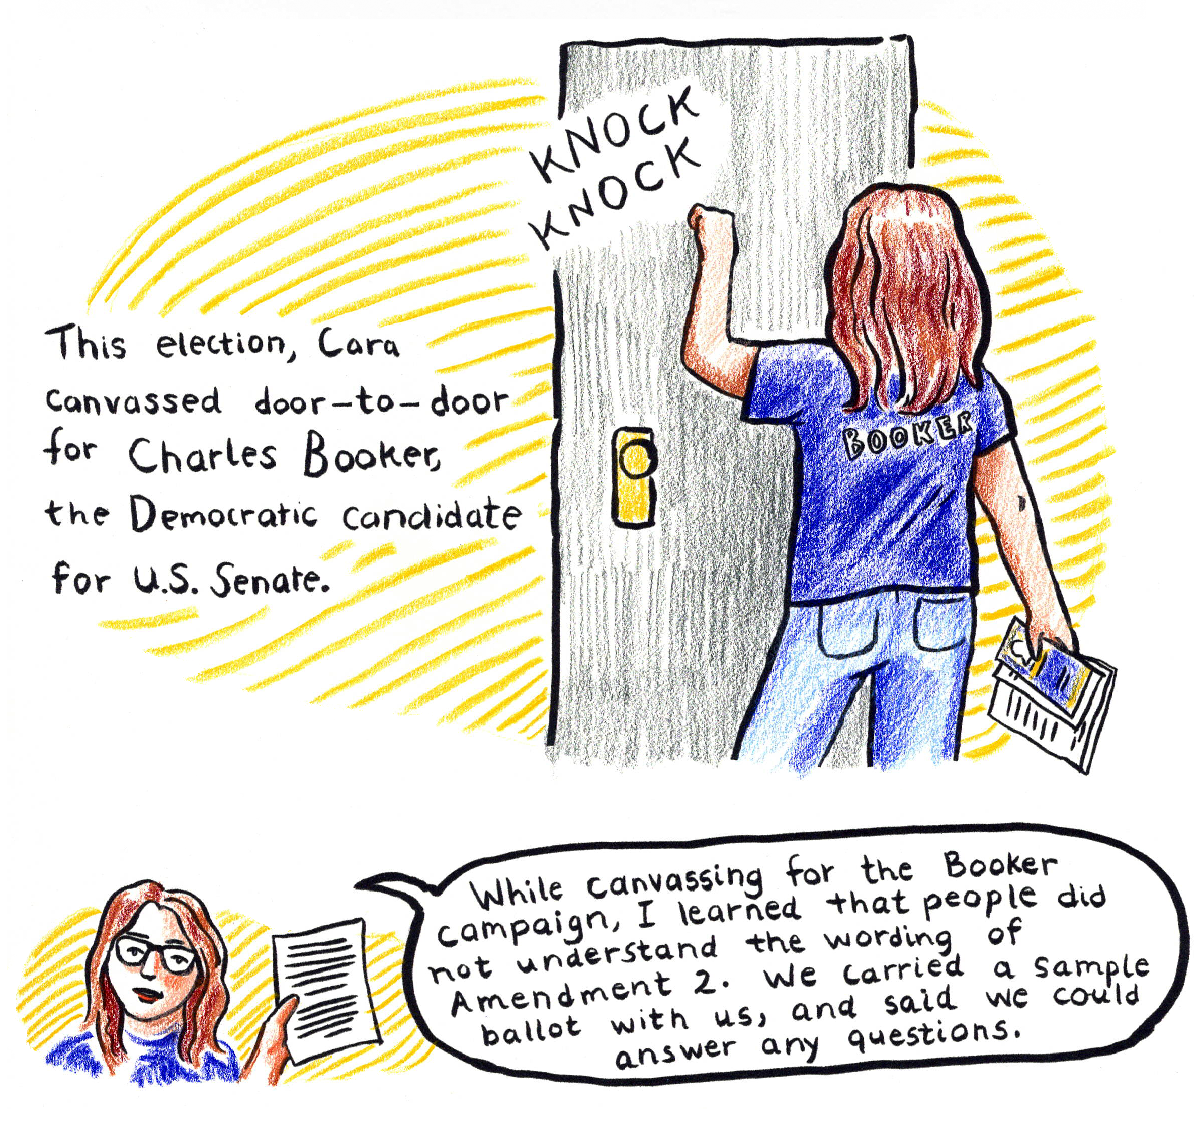 KNOCK
KNOCK
This election, Cara
canvassed door-to-door
for Charles Booker,
the Democratic candidate
for U.S. Senate.
BOOKER
While canvassing for the Booker
campaign, I learned that people did
not understand the wording of
Amendment 2. We carried a sample
ballot with us, and said we could
answer any questions.